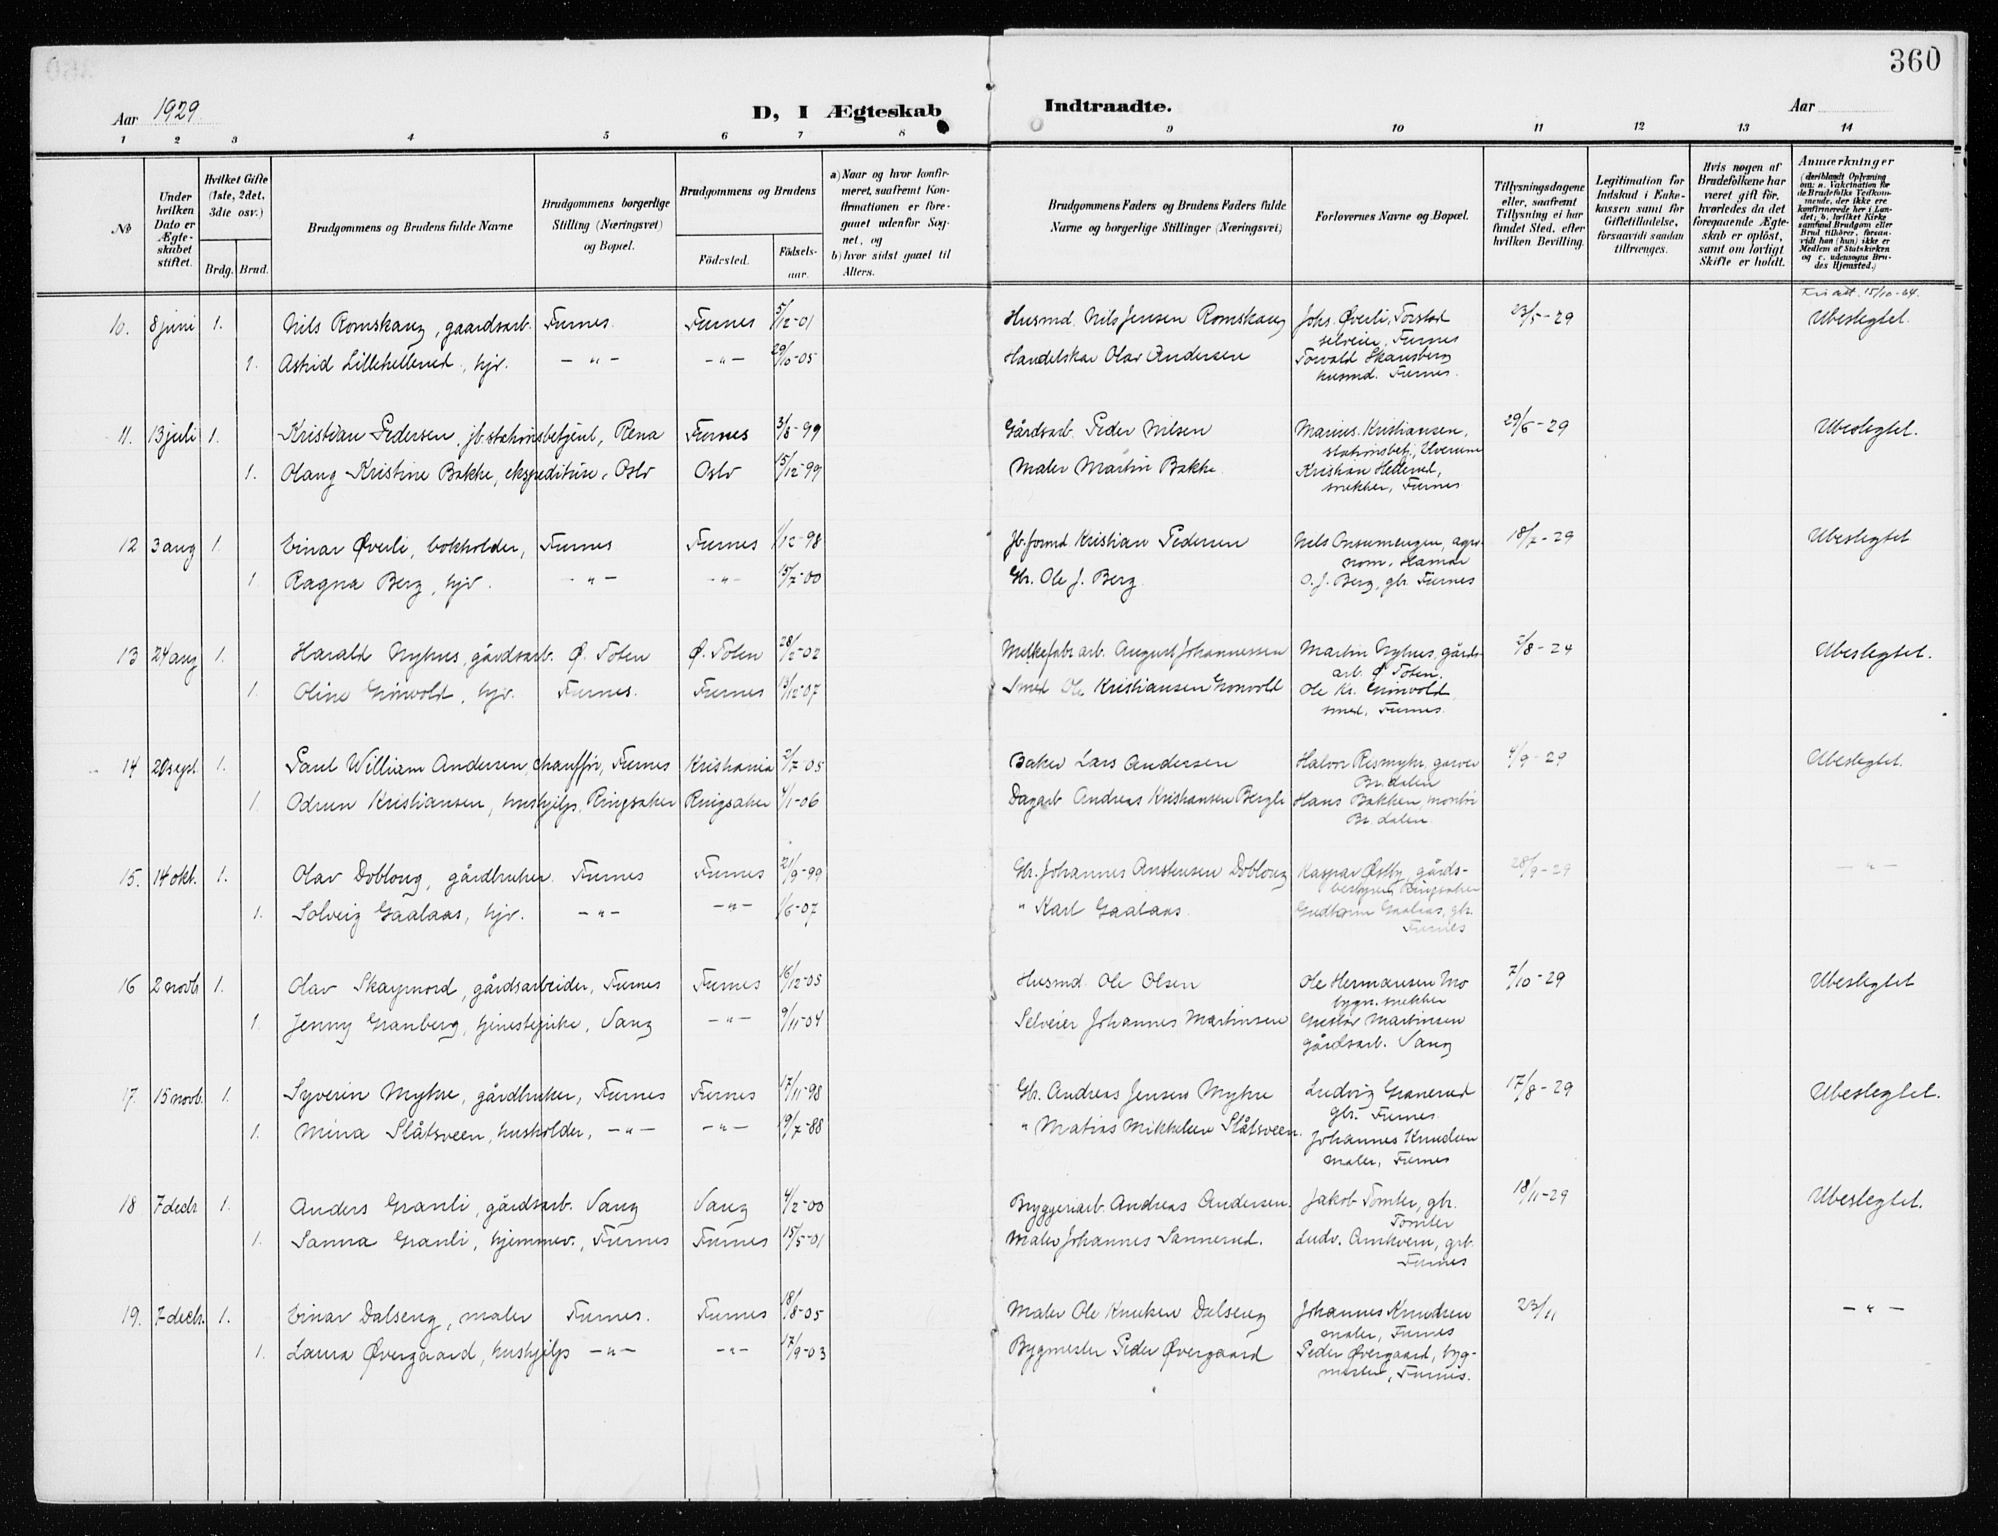 360
Aar 1929
D, I Ægteskab Indtraadte.
Aar
1 2 3 4 5 6 7 8 9 10 11 12 13 14
No
Under hvilken Dato er Ægteskabet stiftet.
Hvilket Gifte (1ste, 2det, 3die osv.)
Brdg. Brud.
Brudgommens og Brudens fulde Navne
Brudgommens borgerlige Stilling (Næringsvei) og Bopæl.
Brudgommens og Brudens
Fødested. Fødselsaar.
a) Naar og hvor konfirmeret, saafremt Konfirmationen er foregaaet udenfor Sognet, og
b) hvor sidst gaaet til Alters.
Brudgommens Faders og Brudens Faders fulde Navne og borgerlige Stillinger (Næringsvei)
Forlovernes Navne og Bopæl.
Tillysningsdagene eller, saafremt Tillysning ei har fundet Sted, efter hvilken Bevilling.
Legitimation for Indskud i Enkekassen samt for Giftetilladelse, forsaavidt saadan tiltrænges.
Hvis nogen af Brudefolkene har været gift før, hvorledes da det foregaaende Ægteskab er opløst, samt om lovligt Skifte er holdt.
Anmærkninger (deriblandt Oplysning om: a. Vakcination for de Brudefolks Vedkommende, der ikke ere konfirmerede her i Landet; b. hvilket Kirkesamfund Brudgom eller Brud tilhører, forsaavidt han (hun) ikke er Medlem af Statskirken og c. udensogns Brudes Hjemsted.)
15/10-24.
10. 8 juni 1. Nils Romskaug, gaardsarb. Furnes Furnes 5/12-01 Husmd. Nils Jensen Romskaug Johs. Øverli, Torstad 23/5-29 Ubeslegtet.
selveier, Furnes
1. Astrid Lillehellerud, hjv. -"- -"- 29/10-05 Handelskar Olav Andersen Torvald Skansberg
husmd. Furnes.
11. 13 juli 1. Kristian Pedersen, jb.stationsbetjent, Rena Furnes 3/8-99 Gårdsarb. Peder Nilsen Marius Kristiansen, 29/6-29 Ubeslegtet.
stationsbetj., Elverum
1. Olaug Kristine Bakke, ekspeditrise, Oslo Oslo 15/12-99 Maler Martin Bakke Kristian Hellerud,
snekker, Furnes
12 3 aug 1. Einar Øverli, bokholder, Furnes Furnes 1/12-98 Jb.formd Kristian Pedersen Nils Onsumengen, agro- 18/7-29 Ubeslegtet
nom, Hamar
1. Ragna Berg, hjv. -"- -"- 15/7-00 Gbr. Ole J. Berg O. J. Berg, gbr. Furnes
13 24 aug 1. Harald Nyhus, gårdsarb. Ø. Toten Ø. Toten 28/2-02 Melkefabr.arb. August Johannessen Martin Nyhus, gårds- 5/8-24 Ubeslegtet.
arb. Ø Toten.
1. Oline Grönvold, hjv. Furnes. Furnes 13/12-07 Smed Ole Kristiansen Gronvold Ole Kr. Grönvold
smed, Furnes.
14 20 sept 1. Paul William Andersen, chauffør, Furnes Kristiania 2/7-05 Baker Lars Andersen Halvor Resmyhr, garver 4/9-29 Ubeslegtet.
Br.dalen
1. Odrun Kristiansen, hushjelp, Ringsaker Ringsaker 4/1-06 Dagarb Andreas Kristiansen Bergli Hans Bakken, montør
Br. dalen
15. 14 okt. 1. Olav Doblong, gårdbruker. Furnes Furnes 21/9-99 Gbr. Johannes Anstensen Doblong Kaspar Østby, gårds- 28/9-29 -"-
bestyrer, Ringsaker
1. Solveig Gaalaas, hjv. -"- -"- 1/6-07 " Karl Gaalaas Gudbrim Gaalaas, gbr.
Furnes
16 2 novb 1. Olav Skarpnord, gårdsarbeider, Furnes Furnes 16/12-05 Husmd. Ole Olsen Ole Hermansen Mo 7/10-29 Ubeslegtet
bygn.snekker
1. Jenny Granberg, tjenestepike, Vang -"- 9/11-04 Selveier Johannes Martinsen Gustav Martinsen
gårdsarb. Vang
17. 15 novb. 1. Syverin Myhre, gårdbruker, Furnes Furnes 17/11-98 Gbr. Andreas Jensen Myhre Ludvig Granerud 17/8-29 Ubeslegtet.
gbr. Furnes
1. Mina Slåtsveen, husholder, -"- -"- 19/7-88 " Matias Mikkelsen Slåtsveen. Johannes Knudsen
maler, Furnes
18 7 decbr 1. Anders Granli, gårdsarb. Vang Vang 4/2-00 Bryggeriarb. Andreas Andersen. Jakob Tomter, gbr. 18/11-29 Ubeslegtet.
Tomter
1. Sanna Granli, hjemmev., Furnes Furnes 15/5-01 Maler Johannes Sannerud. Ludv. Arnkvern, grb.
Furnes
19. 7 decbr. 1. Einar Dalseng, maler Furnes. Furnes 18/8-05 Maler Ole Knutsen Dalseng Johannes Knudsen 23/11 -"-
maler, Furnes
1. Laura Øvergaard, hushjelp -"- -"- 17/9-03 Bygmester Peder Øvergaard Peder Øvergaard, byg-
mester, Furnes.